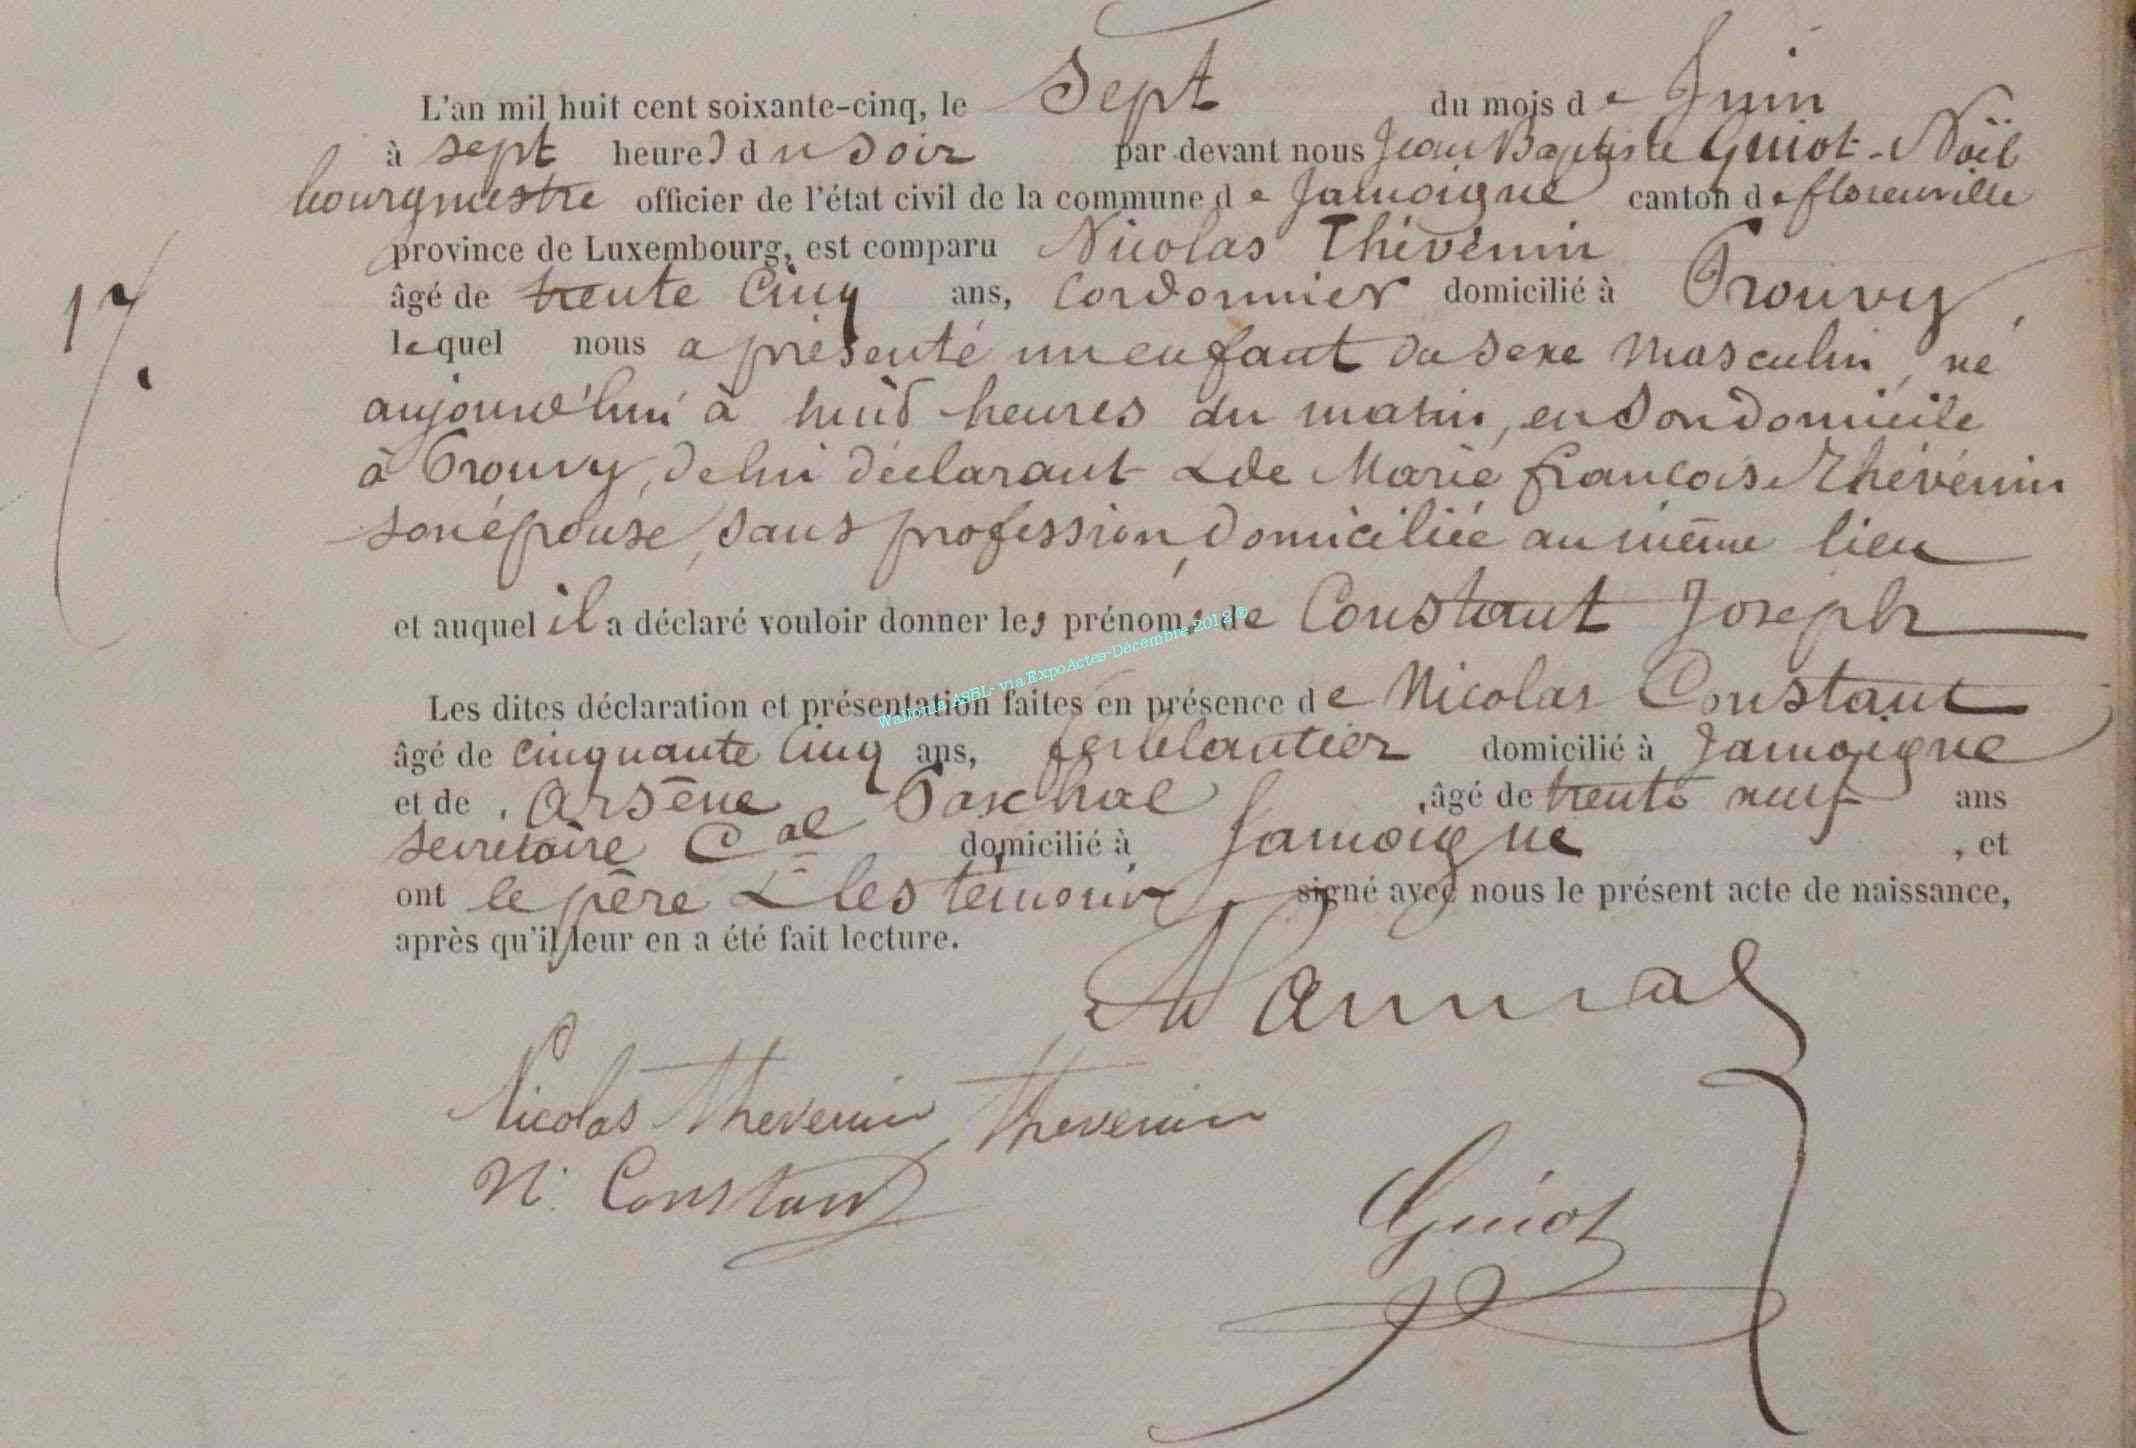 L'an mil huit cent soixante-cinq, le Sept du mois de Juin
à sept heures du soir par devant nous Jean Baptiste Guiot-Noël
bourgmestre officier de l'état civil de la commune de Jamoigne canton de florenville
province de Luxembourg, est comparu Nicolas Thévénin
âgé de trente cinq ans, Cordonnier domicilié à Prouvy,
17.
lequel nous a présenté un enfant du sexe masculin, né
aujourd'hui à huit heures du matin, en son domicile
à Prouvy, de lui déclarant & de Marie françoise Thévénin
son épouse, sans profession, domiciliée au même lieu
et auquel il a déclaré vouloir donner les prénoms de Constant Joseph
Wallonia ASBL- via ExpoActes-Décembre 2012®
Les dites déclaration et présentation faites en présence de Nicolas Constant
âgé de cinquante cinq ans, ferblantier domicilié à Jamoigne
et de Arsène Paschal, âgé de trente neuf ans
secrétaire Cal domicilié à Jamoigne, et
ont le père & les témoins signé avec nous le présent acte de naissance,
après qu'il leur en a été fait lecture.
Nicolas thevenin thevenin
N. Constant
Guiot